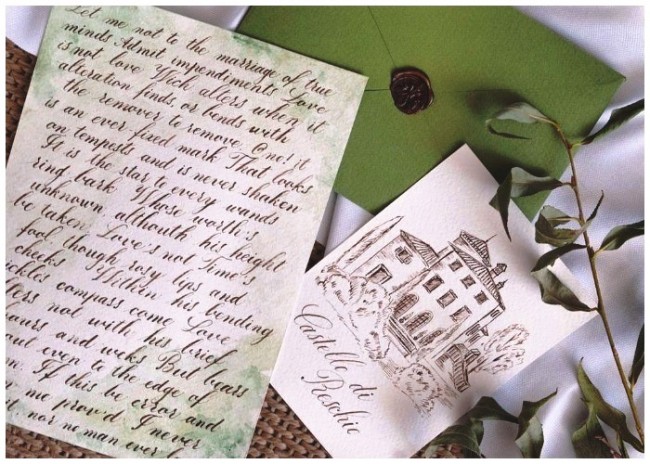 Let me not to the marriage of true
minds Admit impendiments Love
is not love Wich alters when it
alteration finds, or bends with
the remover to remove. @ no! it
is an ever fixed mark That looks
on tempests and is never shaken
It is the star to every wands
rind bark Whose worth's
unknown although his height
be taken Love's not Time's
fool though rosy lips and
cheeks Within his bending
ickles compass come Love
not with his brief
ours and weks But bears
out even to the edge of
If this be error and
me prov'd I never
nor no man ever
Castello di
Roschio